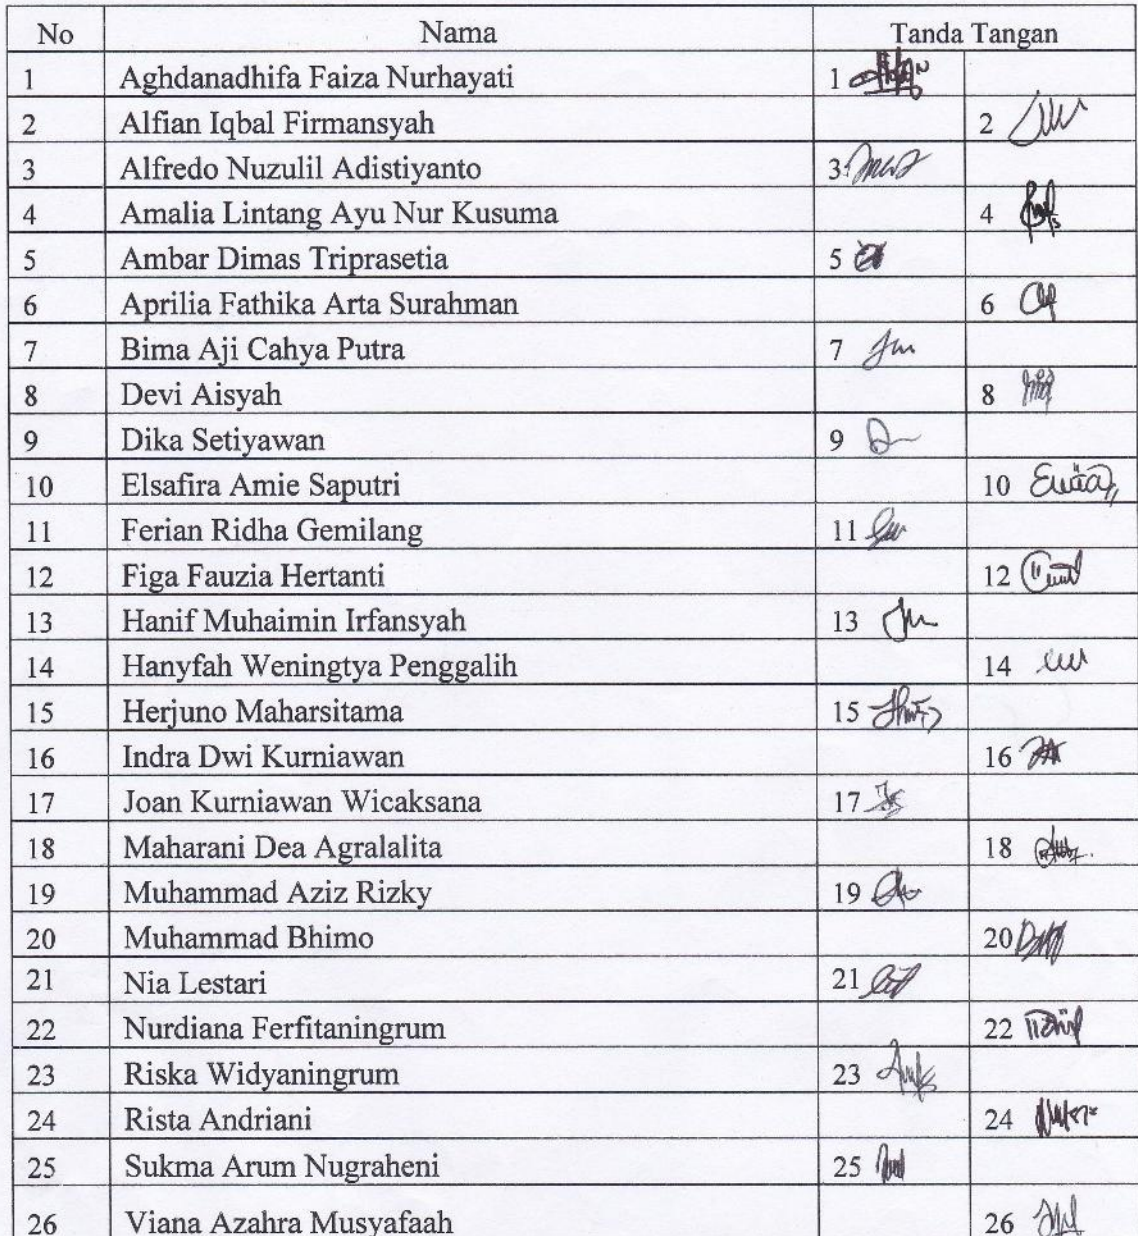 No Nama Tanda Tangan
1 Aghdanadhifa Faiza Nurhayati 1
2 Alfian Iqbal Firmansyah 2
3 Alfredo Nuzulil Adistiyanto 3
4 Amalia Lintang Ayu Nur Kusuma 4
5 Ambar Dimas Triprasetia 5
6 Aprilia Fathika Arta Surahman 6
7 Bima Aji Cahya Putra 7
8 Devi Aisyah 8
9 Dika Setiyawan 9
10 Elsafira Amie Saputri 10
11 Ferian Ridha Gemilang 11
12 Figa Fauzia Hertanti 12
13 Hanif Muhaimin Irfansyah 13
14 Hanyfah Weningtya Penggalih 14
15 Herjuno Maharsitama 15
16 Indra Dwi Kurniawan 16
17 Joan Kurniawan Wicaksana 17
18 Maharani Dea Agralalita 18
19 Muhammad Aziz Rizky 19
20 Muhammad Bhimo 20
21 Nia Lestari 21
22 Nurdiana Ferfitaningrum 22
23 Riska Widyaningrum 23
24 Rista Andriani 24
25 Sukma Arum Nugraheni 25
26 Viana Azahra Musyafaah 26